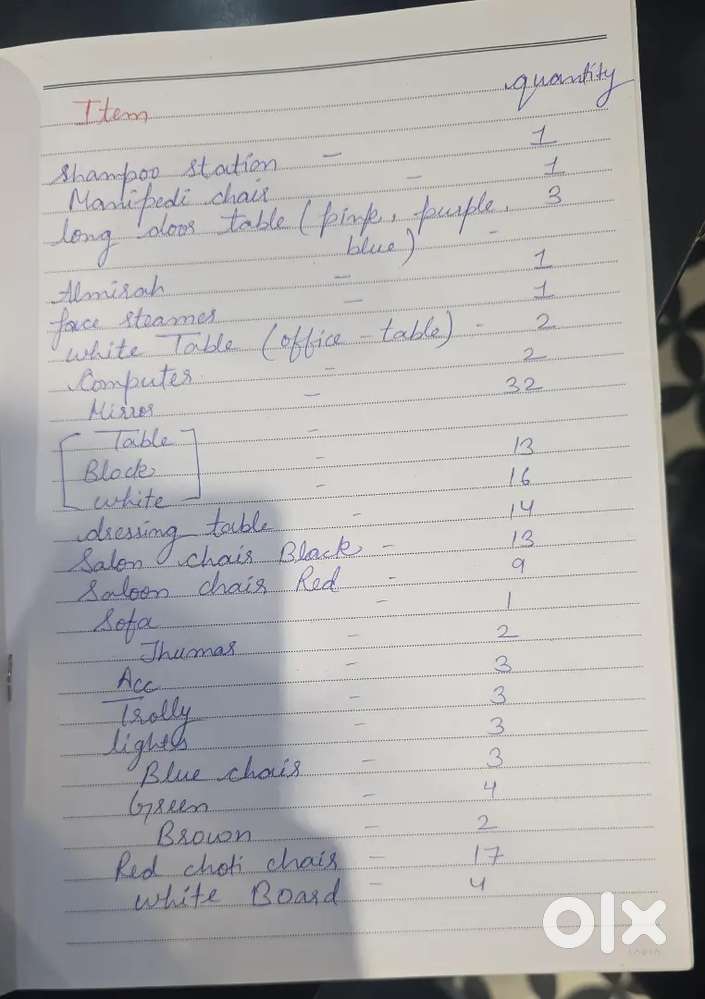 Item quantity
Shampoo station - 1
Manipedi chair - 1
long door table (pink, purple, 3
blue) -
Almirah - 1
face steamer - 1
white Table (office - table) - 2
Computer - 2
Mirror - 32
Table -
Black - 13
white - 16
dressing table - 14
Salon chair Black - 13
Saloon chair Red - 9
Sofa - 1
Jhumar - 2
Acc - 3
Trolly - 3
lights - 3
Blue chair - 3
Green - 4
Brown - 2
Red choti chair - 17
white Board - 4
olx
INDIA